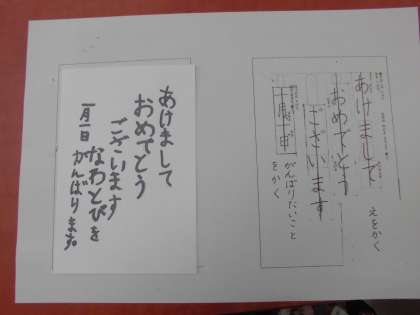 あけまして
おめでとう
ございます
一月一日
なわとびを
がんばります。
えをかく
あけまして
おめでとう
ございます
一月一日
がんばりたいこと
をかく